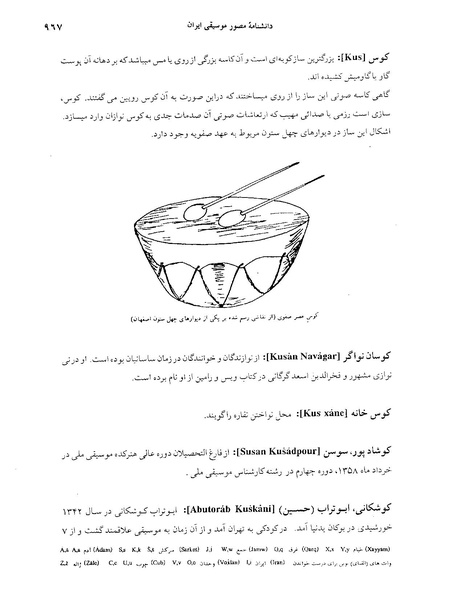 دانشنامهٔ مصور موسیقی ایران ۹۶۷
کوس [Kus]: بزرگترین ساز کوبه‌ای است و آن کاسه بزرگی از روی یا مس میباشد که بر دهانه آن پوست
گاو یا گاومیش کشیده اند.
گاهی کاسه صوتی این ساز را از روی میساختند که دراین صورت به آن کوس رویین می گفتند. کوس،
سازی است رزمی با صدائی مهیب که ارتعاشات صوتی آن صدمات جدی به کوس نوازان وارد میسازد.
اشکال این ساز در دیوارهای چهل ستون مربوط به عهد صفویه وجود دارد.
کوس عصر صفوی (از نقاشی رسم شده بر یکی از دیوارهای چهل ستون اصفهان)
کوسان نواگر [Kusán Navágar]: از نوازندگان و خوانندگان در زمان ساسانیان بوده است. او در نی
نوازی مشهور و فخرالدین اسعد گرگانی در کتاب ویس و رامین از او نام برده است.
کوس خانه [Kus xáne]: محل نواختن نقاره را گویند.
کوشاد پور، سوسن [Susan Kušádpour]: از فارغ التحصیلان دوره عالی هنرکده موسیقی ملی در
خرداد ماه ۱۳۵۸، دوره چهارم در رشته کارشناس موسیقی ملی.
کوشکانی، ابوتراب (حسین) [Abutoráb Kuškáni]: ابوتراب کوشکانی در سال ۱۳۴۲
خورشیدی در بوکان بدنیا آمد. در کودکی به تهران آمد و از آن زمان به موسیقی علاقمند گشت و از ۷
(Xayyam) خیام X,x Y,y (Qarq) غرق Q,q (Jamw) جمع W,w J,j (Sarkeš) سرکش Š,š K,k S,s (Adam) آدم A,a Á,á
Z,ž (Žále) ژاله C,c U,u (Cub) چوب V,v O,o (Vojdán) وجدان I,i (Iran) ایران